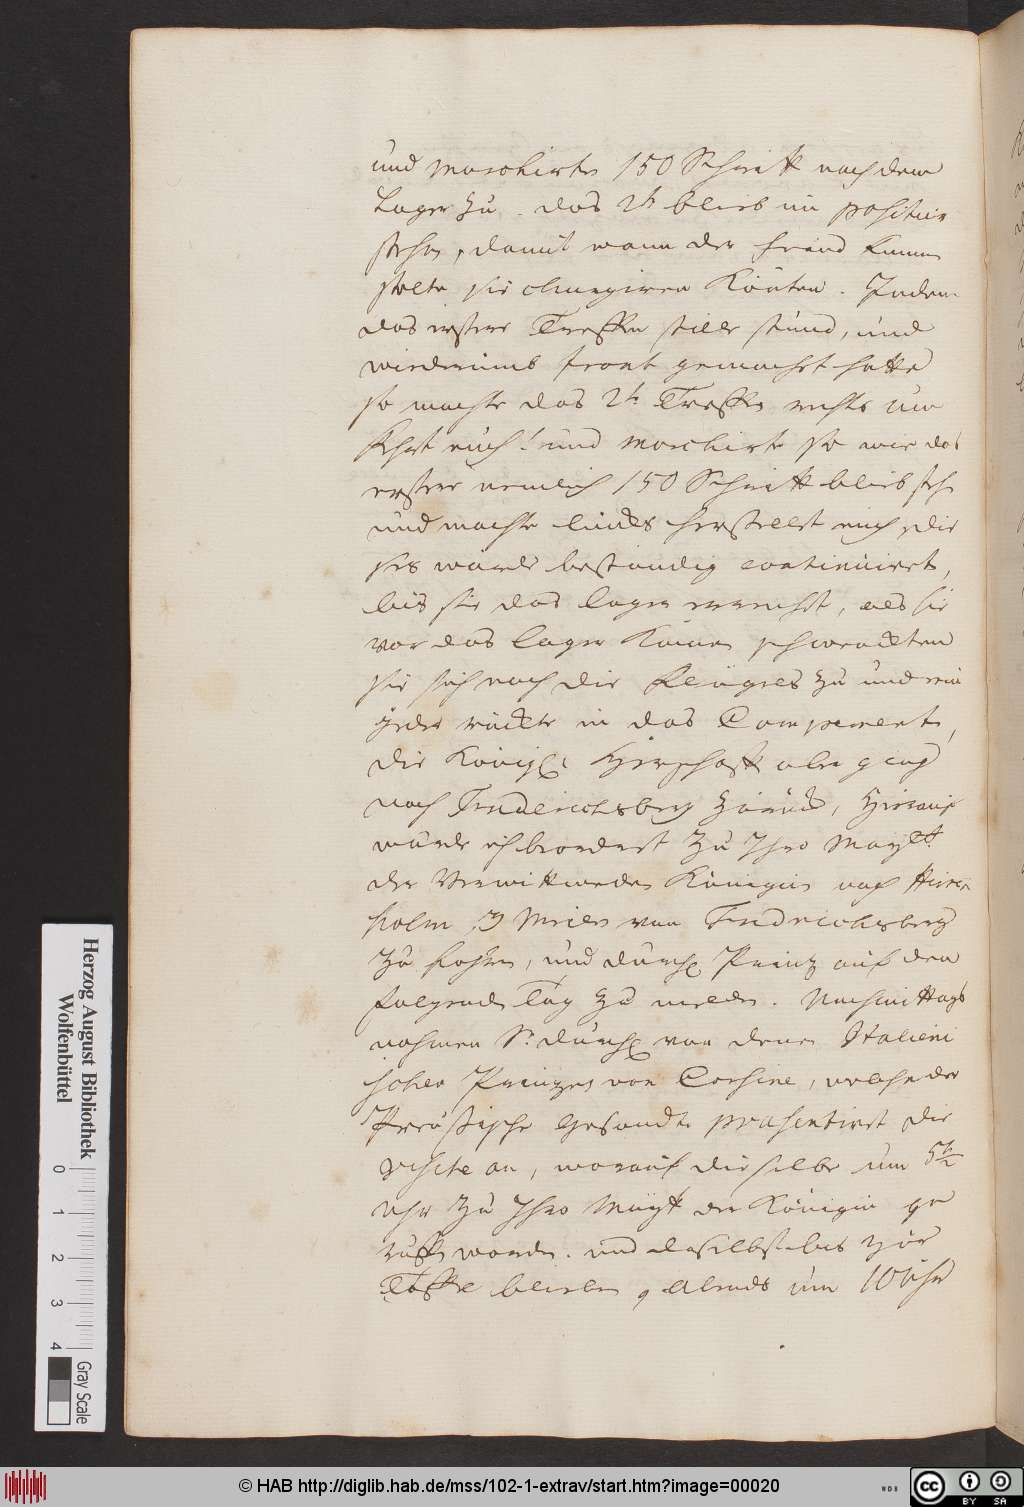 und marchirte 150 Schritt nach dem
Lager zu. das 2te blieb in positur
stehen, damit wann der Feind kommen
solte sie chargiren könten. Indem
das erstere Treffen stille stund, und
wiederumb front gemacht hatte
so machte das 2te Treffen rechts um
kehrt euch! und marchirte so wie das
erstere nemlich 150 Schritt blieb stehen
und machte lincks herstellt euch, die
ses wurde beständig continuirt,
bis sie das Lager erreicht, als sie
vor das Lager kamen schwenckten
sie sich nach die Flügels zu und ein
jeder rückte in das Campement,
die Königl. Herrschafft aber ging
nach Friederichsberg zurück, Hierauf
wurde ich beordert zu Ihro Mayestt
der Verwittweden Königin nach Hirsch
holm 3 Meilen von Friedrichsberg
zu fahren, und durchl Prinz auf den
folgenden Tag zu melden. Nachmittags
nahmen Sr. durchl von denen Italieni
schen Prinzen von Corsine, welche der
Preusische Gesandte præsentirt die
visite an, worauf dieselbe um 5 1/2
Uhr zu Ihro Mayt der Königin ge
ruffen worden. und daselbst bis zur
Taffel blieben, Abends um 10 Uhr
Herzog August Bibliothek
Wolfenbüttel
0 1 2 3 4
Gray Scale
© HAB http://diglib.hab.de/mss/102-1-extrav/start.htm?image=00020
WDB
cc BY SA